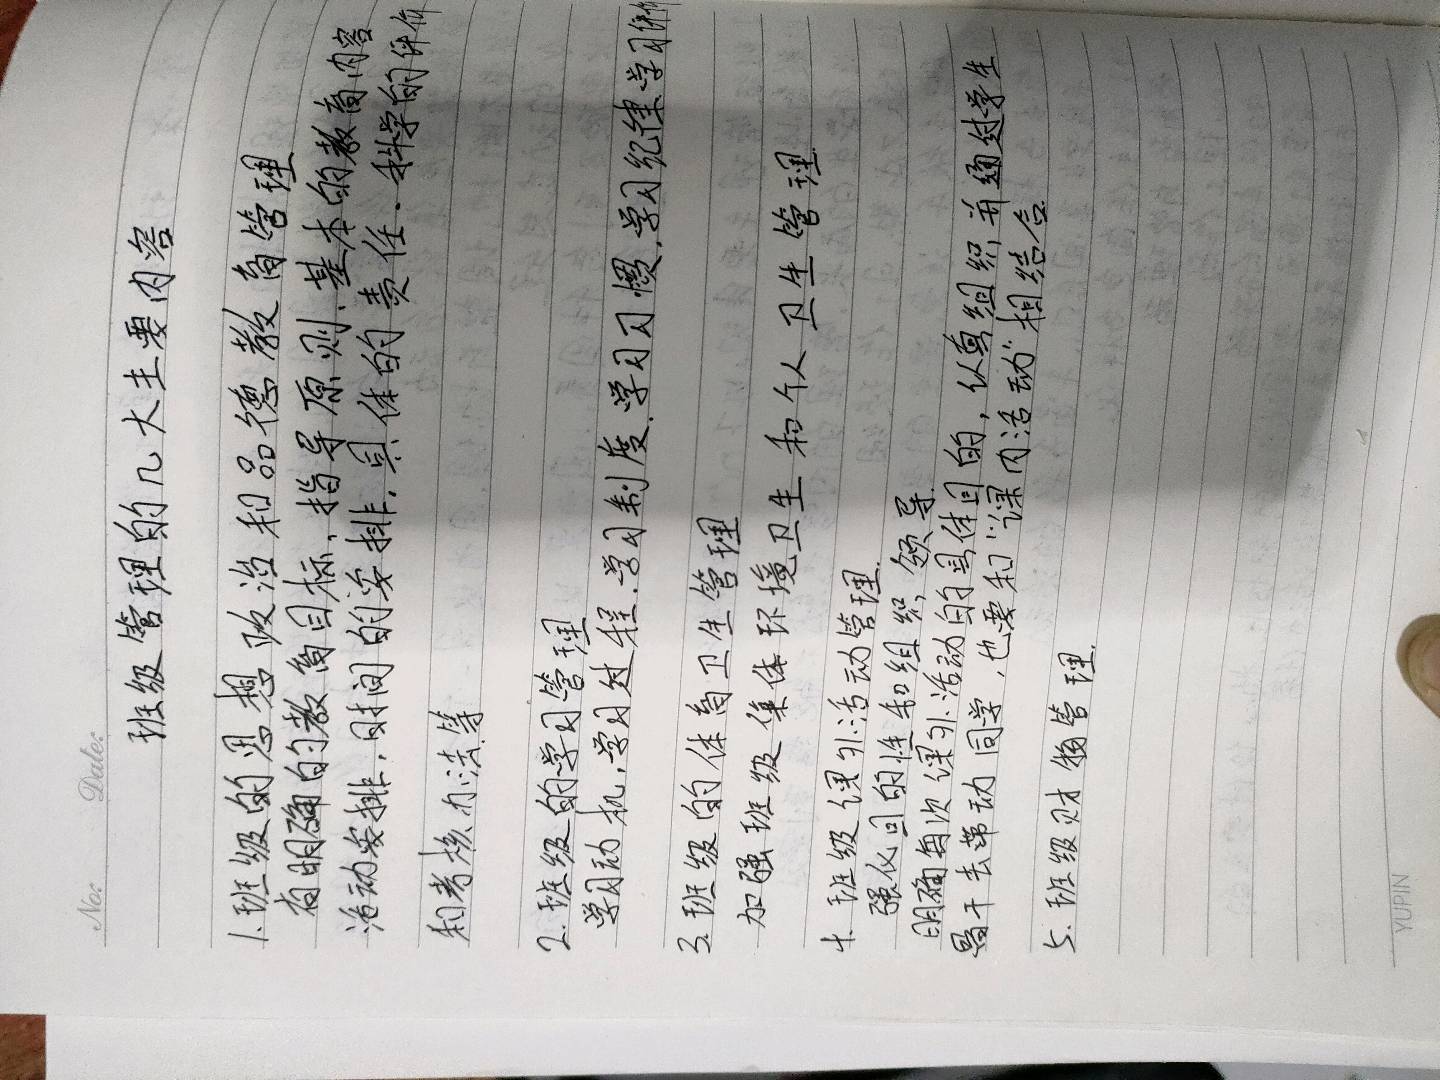 No:
Date:
班级管理的几大主要内容
1.班级的思想政治和品德教育管理
有明确的教育目标,指导原则.基本的教育内容
活动安排,时间的安排.具体的责任.科学的评价
和考核办法等
2.班级的学习管理
学习动机,学习过程.学习制度.学习习惯.学习纪律学习评价
3.班级的体育卫生管理
加强班级集体环境卫生和个人卫生管理.
4.班级课外活动管理.
强化目的性和组织,领导.
明确每次课外活动的具体目的,认真组织并通过学生
骨干去带动同学,也要和“课内活动”相结合.
5.班级财物管理.
YUPIN